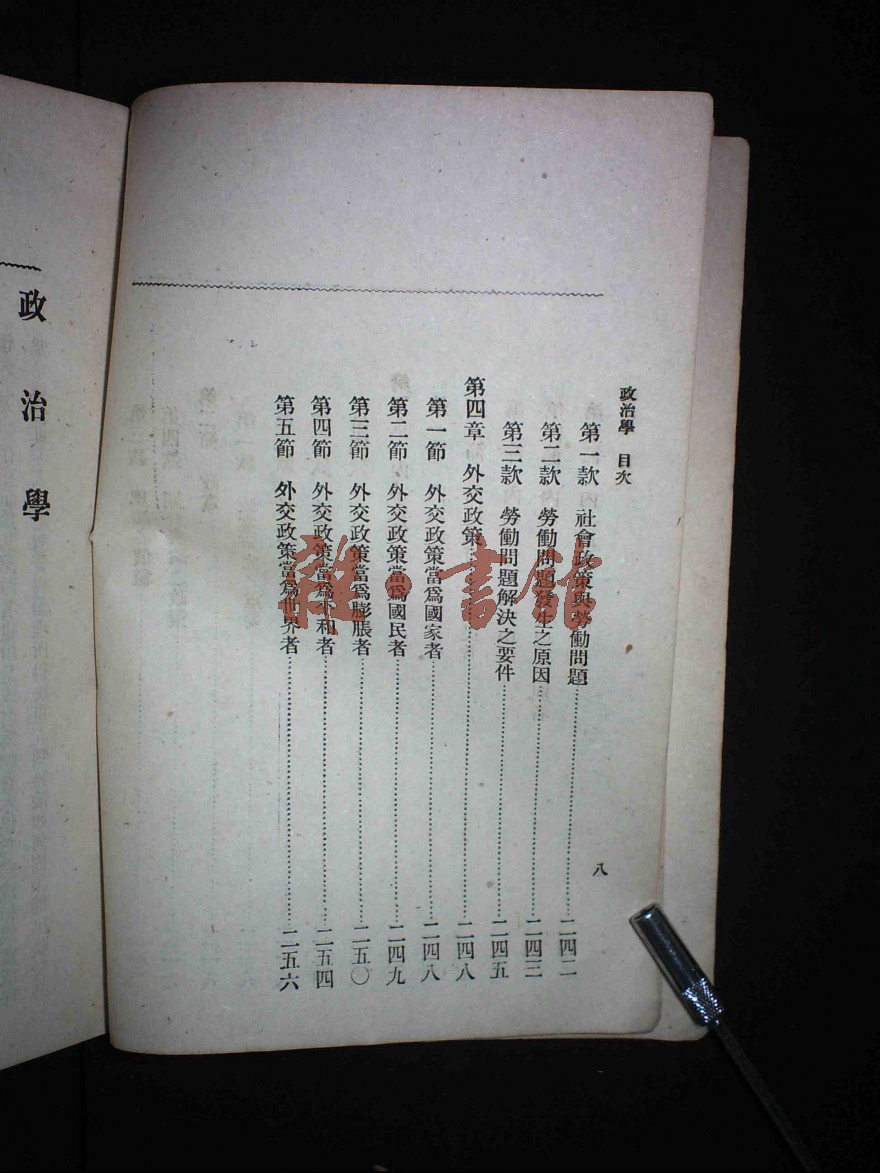 政治學 目次
第一款 社會政策與勞働問題……二四二
第二款 勞働問題發生之原因……二四三
第三款 勞働問題解決之要件……二四五
第四章 外交政策……二四八
第一節 外交政策當爲國家者……二四八
第二節 外交政策當爲國民者……二四九
第三節 外交政策當爲膨脹者……二五〇
第四節 外交政策當爲平和者……二五四
第五節 外交政策當爲世界者……二五六
八
政治學
雜·書館